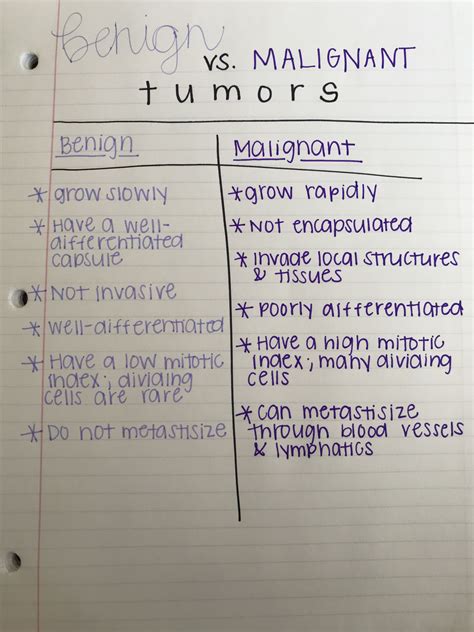 Benign
vs. MALIGNANT
tumors
Benign
* grow slowly
* Have a well-
differentiated
capsule
* Not invasive
* well-differentiated
* Have a low mitotic
index; dividing
cells are rare
* Do not metastisize
Malignant
* grow rapidly
* Not encapsulated
* Invade local structures
& tissues
* Poorly differentiated
* Have a high mitotic
index; many dividing
cells
* can metastisize
through blood vessels
& lymphatics